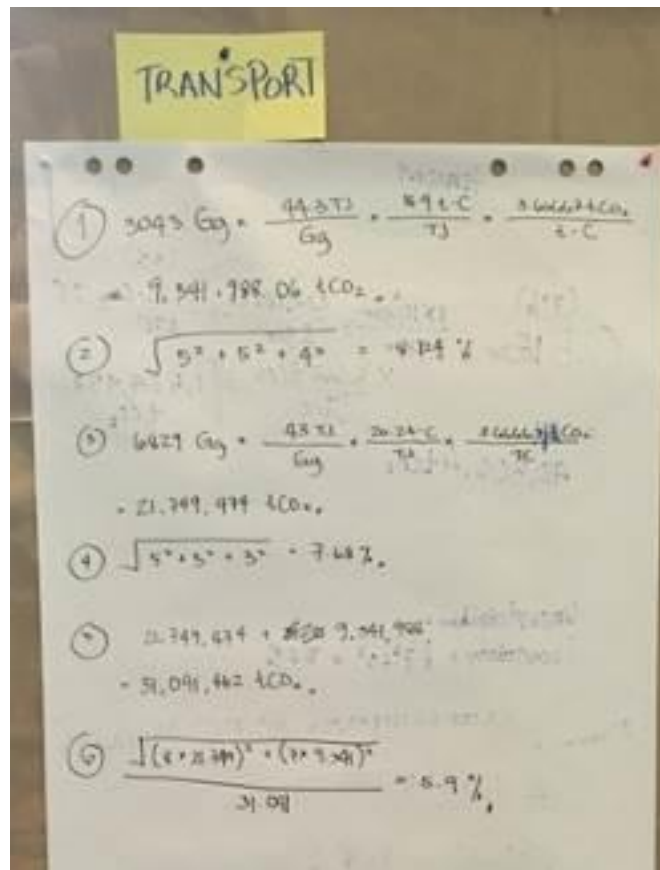 TRANSPORT
① 3043 Gg × 44.3 TJ / Gg × 18.9 t-C / TJ × 3.66667 t CO₂ / t-C
= 9,341,988.06 tCO₂
② √5² + 5² + 4² = 8.124 %
③ 6829 Gg × 43 TJ / Gg × 20.2 t-C / TJ × 3.66667 t CO₂ / TC
= 21,749,474 tCO₂
④ √5² + 5² + 3² = 7.68 %
⑤ 21,749,474 + 9,341,988
= 31,091,462 tCO₂
⑥ = 5.9 %
31.09